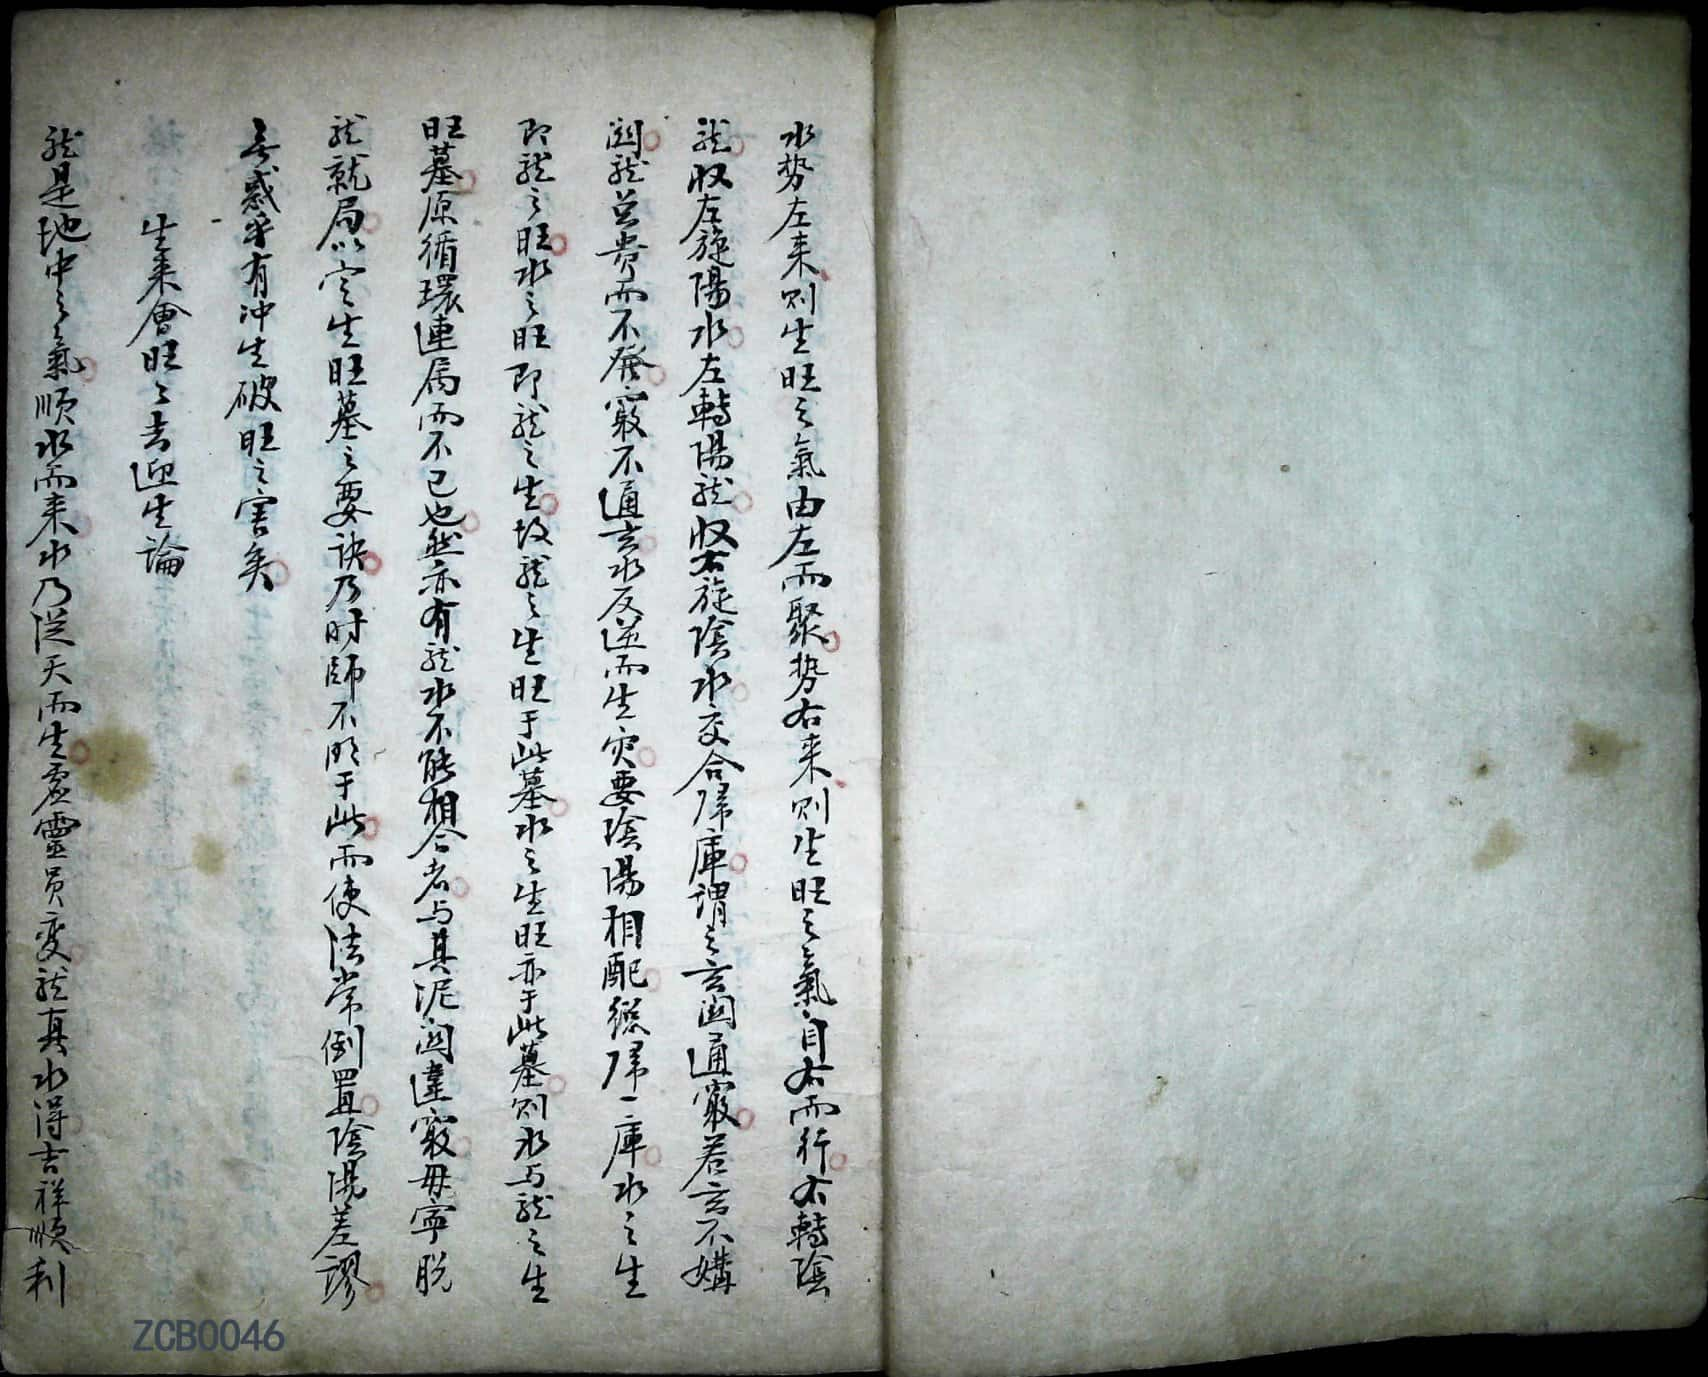 水势左来则生旺之氣由左而聚势右来则生旺之氣自右而行右轉陰
龙収左旋陽水左轉陽龙収右旋陰水交合歸庫謂之玄関通竅若玄不媾
関龙岂贵而不發竅不通玄水反逆而生灾要陰陽相配緫歸一庫水之生
即龙之旺水之旺即龙之生故龙之生旺于此墓水之生旺亦于此墓则水与龙之生
旺墓原循環連属而不已也然亦有龙水不能相合者与其泥関違竅毋寧脱
龙就局以定生旺墓之要訣乃时師不明于此而使法常倒置陰陽差謬
無惑乎有冲生破旺之害矣
生来會旺旺去迎生論
龙是地中之氣順水而来水乃從天而生虚靈员变龙真水得吉祥順利
ZCB0046